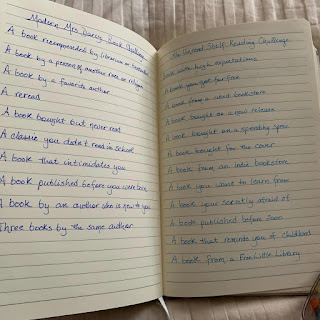 Modern Mrs. Darcy Book Challenge
A book recommended by librarian or bookseller
A book by a person of another race or religion
A book by a favorite author
A reread
A book bought but never read
A classic you didn't read in school
A book that intimidates you
A book published before you were born
A book by an author who is new to you
Three books by the same author
The Unread Shelf Reading Challenge
Book with high expectations
A book you got for free
A book from a used bookstore
A book bought on a new release
A book bought on a spending spree
A book bought for the cover
A book from an indie bookstore
A book you want to learn from
A book your secretly afraid of
A book published before
A book that reminds you of childhood
A book from a Free Little Library